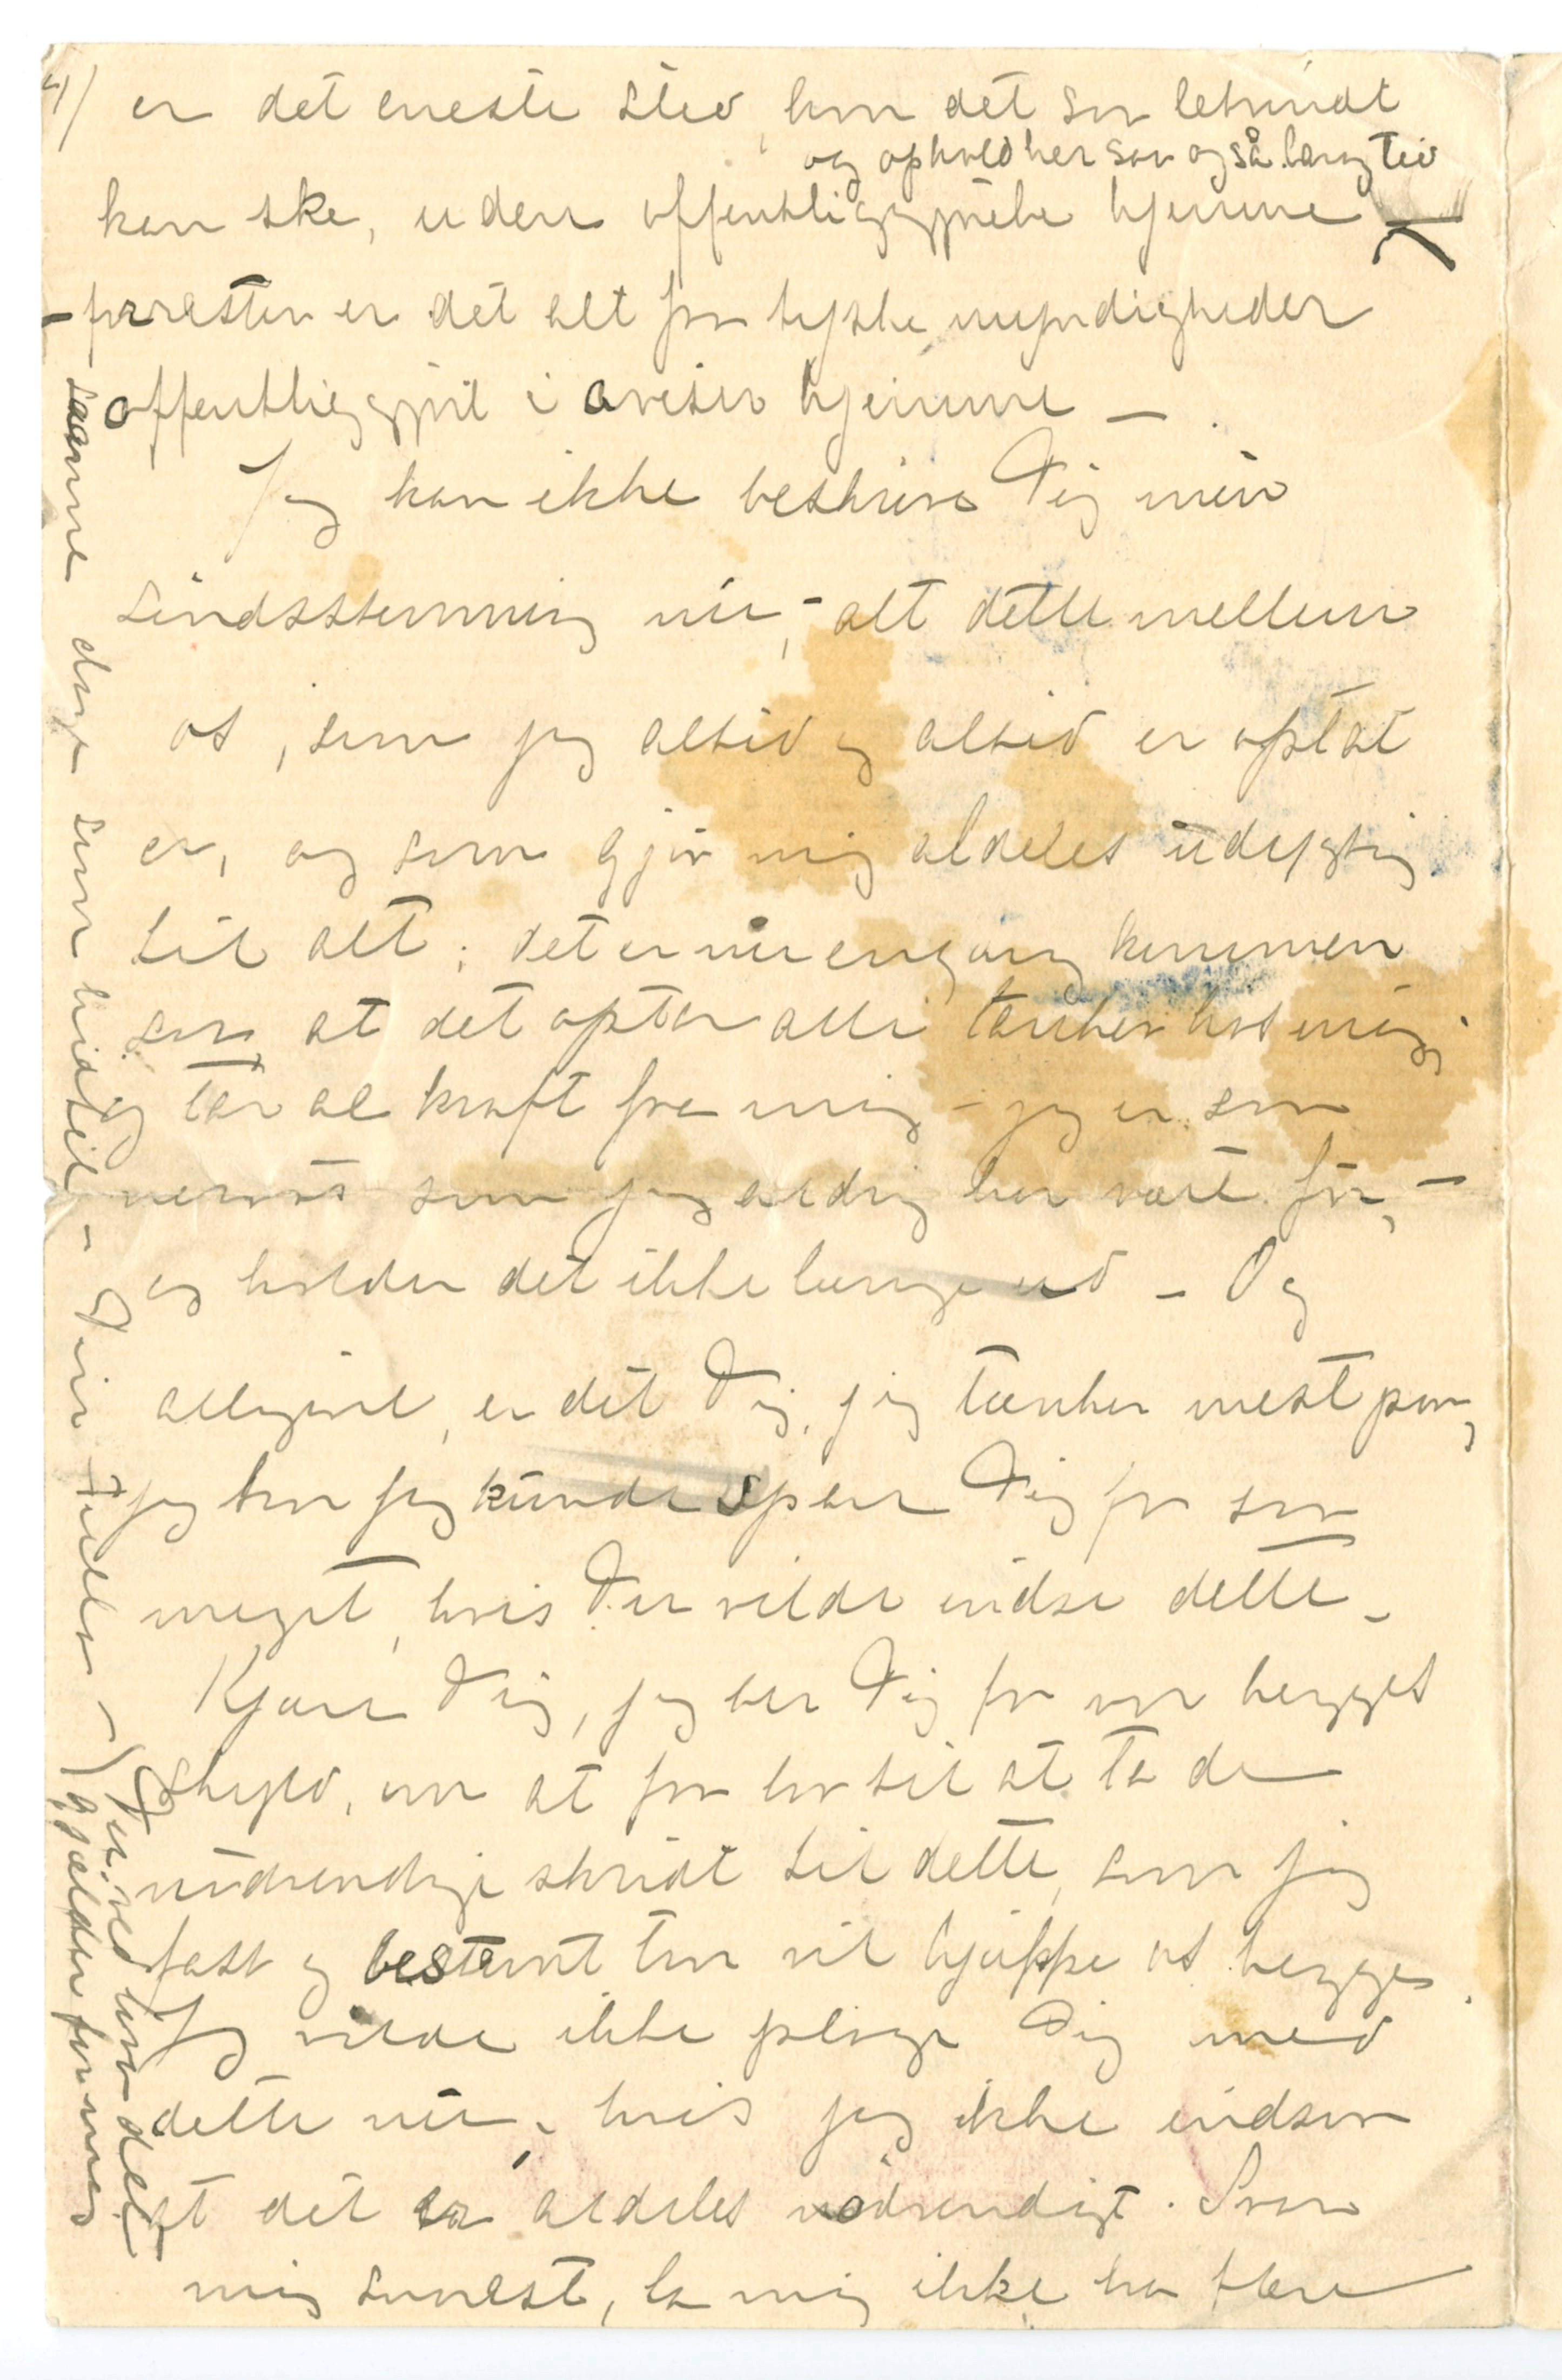 4/ er det eneste sted, hvor det saa letvindt
og ophold her saa også lang tid
kan ske, uden offentliggjørelse hjemme
– forresten er det alt fra tyske myndigheder
offentliggjort i aviser hjemme –
Jeg kan ikke beskrive Dig min
sindsstemning nu, – alt dette mellem
os, som jeg altid og altid er optat
er, og som gjør mig aldeles udygtig
til alt; det er nu engang kommen
saa at det optar alle tanker hos mig,
og tar al kraft fra mig – jeg er saa
nervøs som jeg aldrig har vært før, –
og holder det ikke længe ud – Og
alligevel, er det Dig, jeg tænker mest paa,
jeg tror jeg kunde spare Dig for saa
meget, hvis Du vilde indse dette –
Kjære Dig, jeg ber Dig for vor begges
skyld, om at faa lov til at ta de
nødvendige skridt til dette, som jeg
fast og bestemt tror vil hjælpe os begge.
Jeg vilde ikke plage Dig med
dette nu, hvis jeg ikke indsaa
at det er aldeles nødvendigt. Svar
mig snarest, la mig ikke ha flere
samme dag som hidtil – Din Tulla –
Du ved hvor det
gjælder for mig